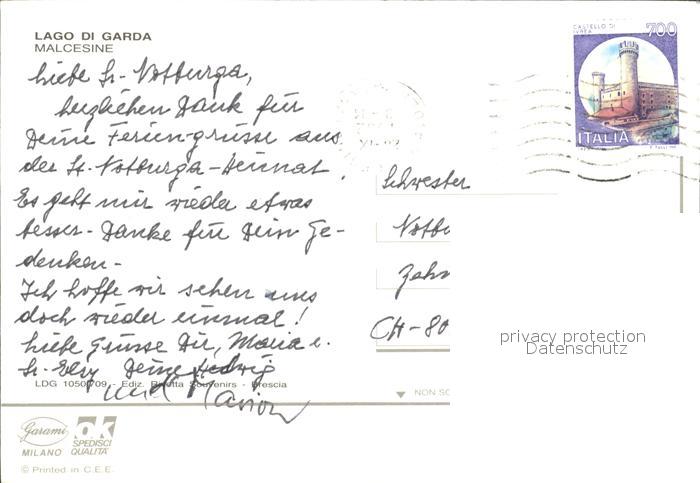 LAGO DI GARDA
MALCESINE
Liebe Sr. Notburga,
herzlichen Dank für
Deine Feriengrüsse aus
der St. Notburga-Heimat!
Es geht mir wieder etwas
besser - Danke für Dein Ge-
denken -
Ich hoffe wir sehen uns
doch wieder einmal!
Liebe Grüsse Dir, Maria u.
Sr. Elsy Deine Hedwig
und Marion
LDG 1050/709 - Ediz. Souvenirs - Brescia
Garami
MILANO
OK
SPEDISCI
QUALITA'
© Printed in C.E.E.
CASTELLO DI
IVREA
700
ITALIA
Schwester
Notbu
Zahn
CH-80
NON SC
privacy protection
Datenschutz